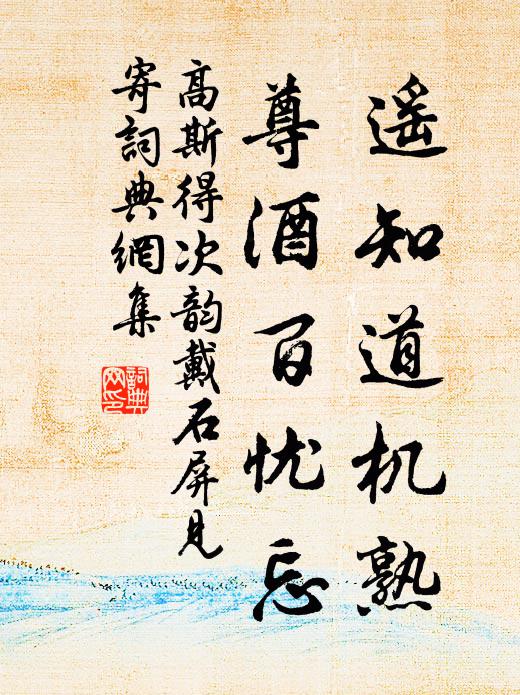 遥知道机熟
尊酒百忧忘
高斯得次韵戴石屏见
寄詞典網集
詞典
网印